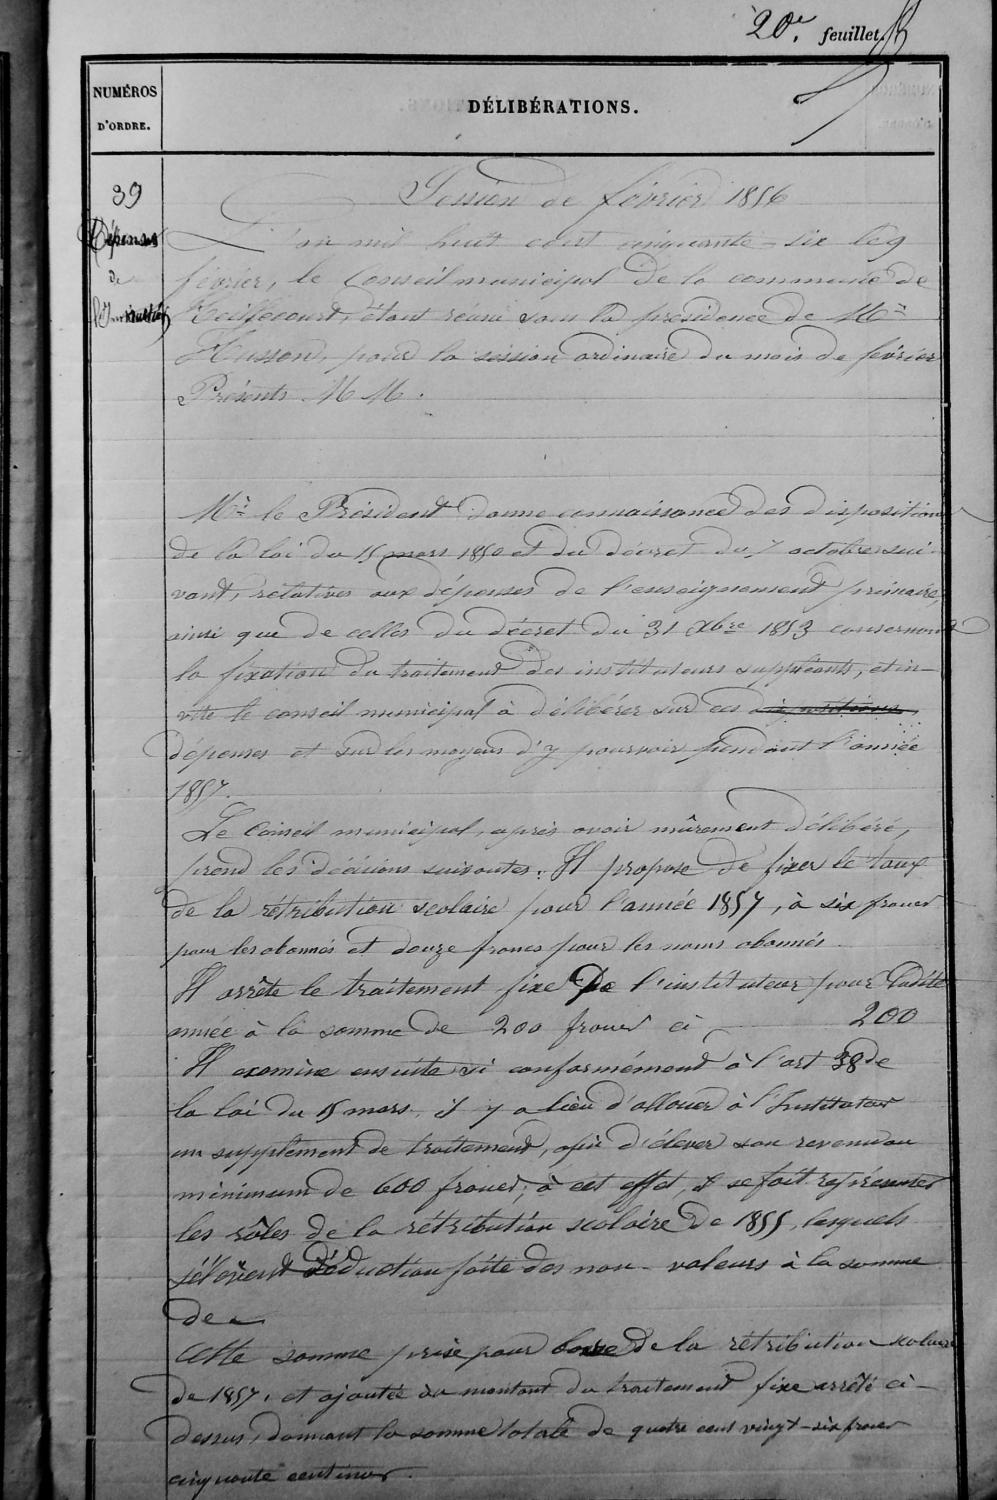 20e. feuillet.
NUMÉROS
D'ORDRE.
DÉLIBÉRATIONS.
39
Dépenses
de
l'Instruction
Session de février 1856
L'an mil huit cent cinquante-six le 9
février, le Conseil municipal de la commune de
étant réuni sous la présidence de Mr
Husson, pour la session ordinaire du mois de février
Présents MM.
Mr le Président donne connaissance des dispositions
de la loi du 15 mars 1850 et du décret du 7 octobre sui-
vant, rélatives aux dépenses de l'enseignement primaire,
ainsi que de celles du décret du 31 Xbre 1853 consernant
la fixation du traitement des instituteurs suppléants, et in-
vite le conseil municipal à délibérer sur ces dispositions
dépenses et sur les moyens d'y pourvoir pendant l'année
1857.
Le Conseil municipal, après avoir mûrement délibéré,
prend les décisions suivantes. Il propose de fixer le taux
de la rétribution scolaire pour l'année 1857, à six francs
pour les abonnés et douze francs pour les nons abonnés.
Il arrête le traitement fixe de l'instituteur pour ladite
année à la somme de 200 francs ci 200
Il examine ensuite si conformément à l'art 38 de
la loi du 15 mars, il y a lieu d'allouer à l'Instituteur
un supplément de traitement, afin d'élever son revenu au
minimum de 600 francs; à cet effet, il se fait représenter
les rôles de la rétribution scolaire de 1855, lesquels
s'élèvent déduction faite des non-valeurs à la somme
de
Cette somme prise pour base de la rétribution scolaire
de 1857, et ajoutée au montant du traitement fixe arrêté ci-
dessus, donnant la somme totale de quatre cent vingt-six francs
cinquante centimes.